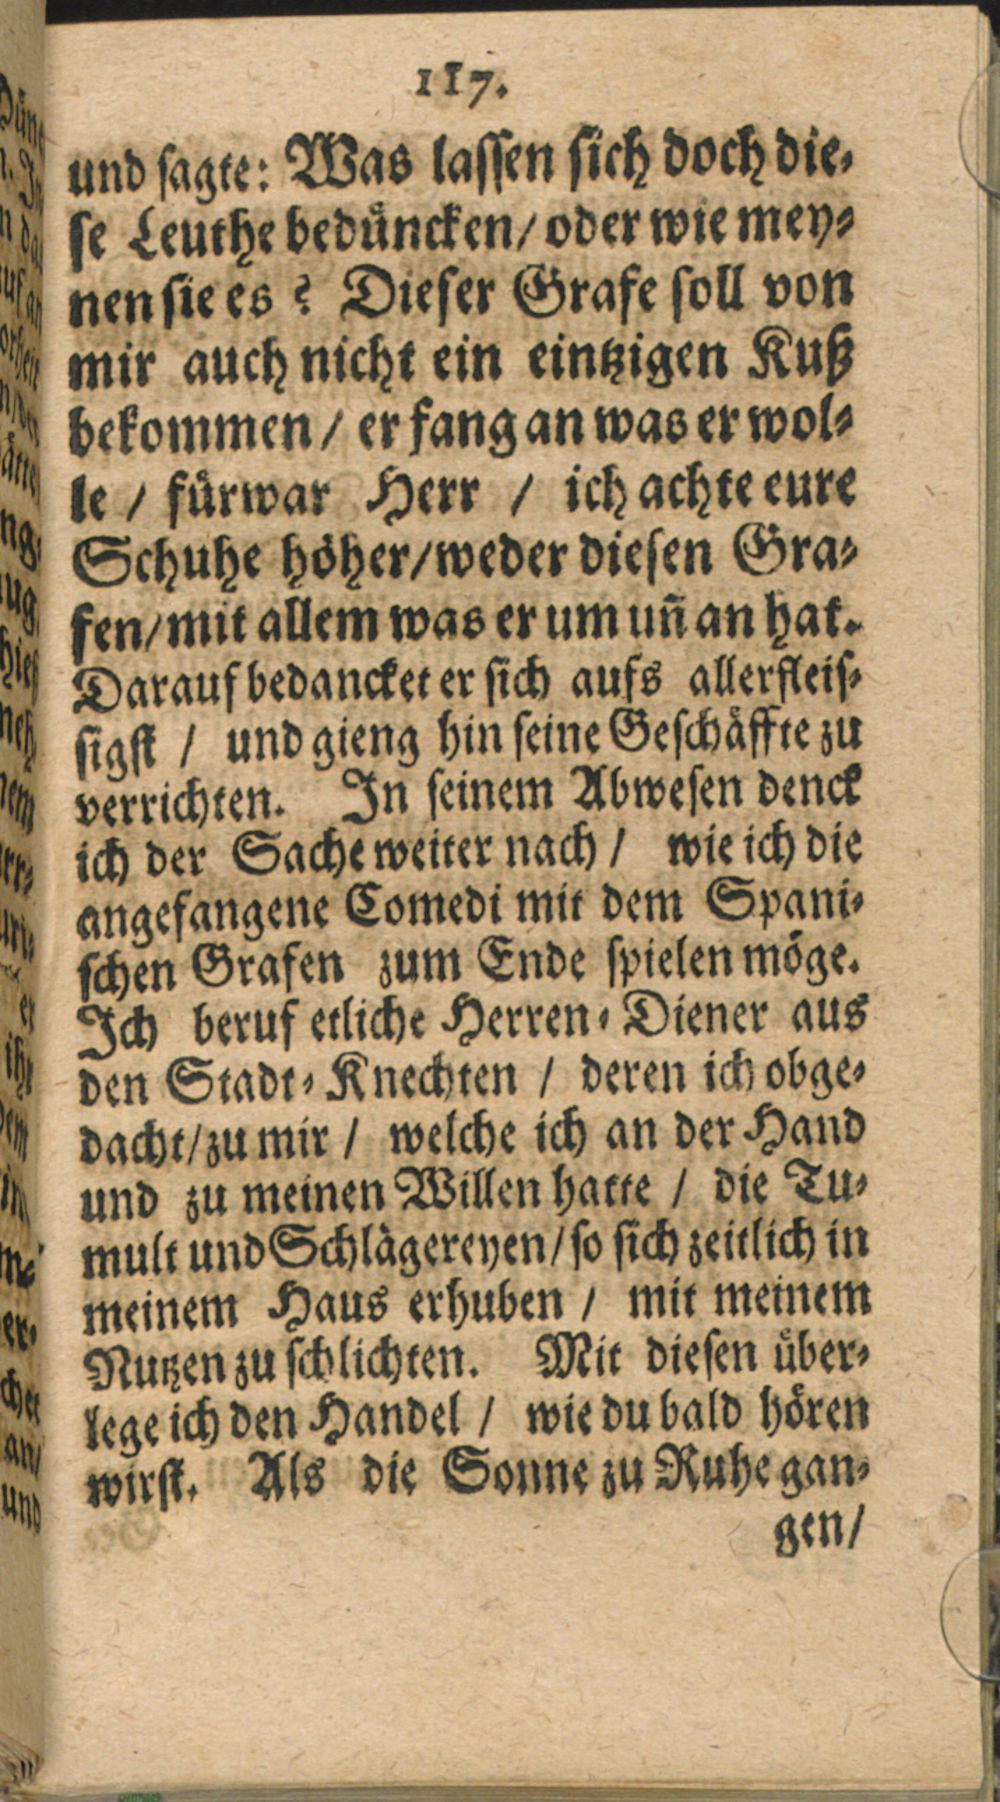 117.
und sagte: Was lassen sich doch die-
se Leuthe bedüncken/ oder wie mey-
nen sie es? Dieser Grafe soll von
mir auch nicht ein eintzigen Kuß
bekommen / er fang an was er wol-
le / fürwar Herr / ich achte eure
Schuhe höher/weder diesen Gra-
fen/mit allem was er um uñ an hat.
Darauf bedancket er sich aufs allerfleis-
sigst / und gieng hin seine Geschäffte zu
verrichten. In seinem Abwesen denck
ich der Sache weiter nach / wie ich die
angefangene Comedi mit dem Spani-
schen Grafen zum Ende spielen möge.
Ich beruf etliche Herren-Diener aus
den Stadt-Knechten / deren ich obge-
dacht/zu mir / welche ich an der Hand
und zu meinen Willen hatte / die Tu-
mult und Schlägereyen/so sich zeitlich in
meinem Haus erhuben / mit meinem
Nutzen zu schlichten. Mit diesen über-
lege ich den Handel / wie du bald hören
wirst. Als die Sonne zu Ruhe gan-
gen/